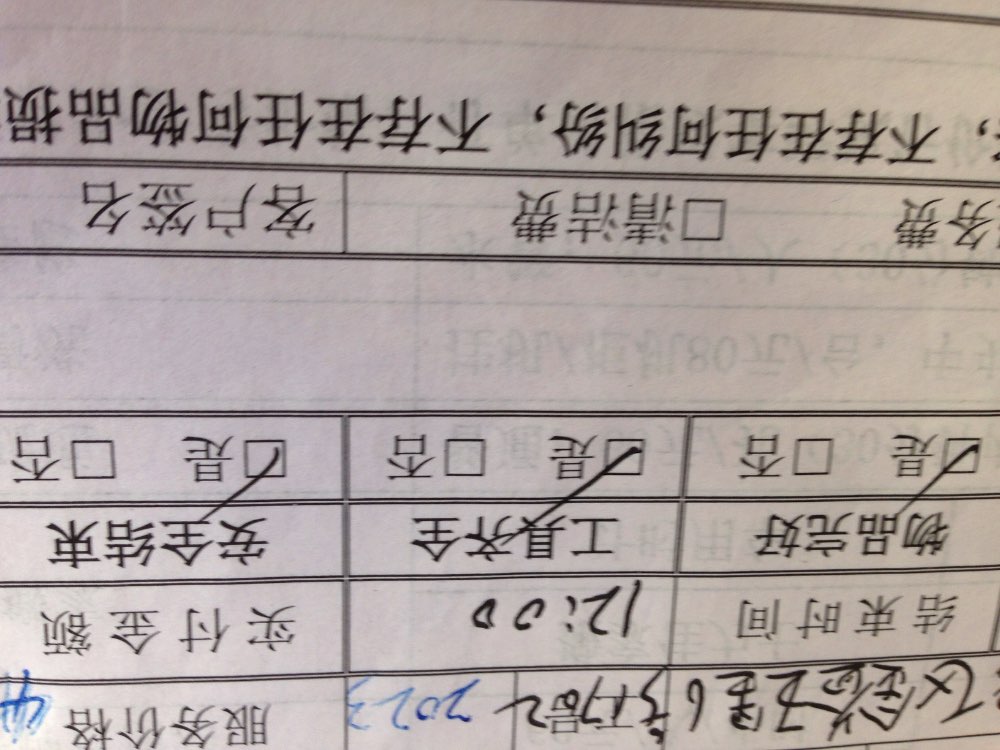 1702 2023 服务价格
结束时间 12:00 实付金额
物品完好 工具齐全 安全结束
☑是 □否 ☑是 □否 ☑是 □否
务费 □清洁费 客户签名
，不存在任何纠纷，不存在任何物品损